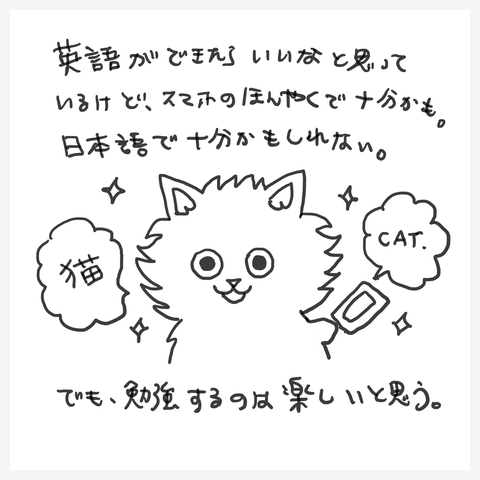 英語ができたらいいなと思って
いるけど、スマホのほんやくで十分かも。
日本語で十分かもしれない。
猫
CAT.
でも、勉強するのは楽しいと思う。